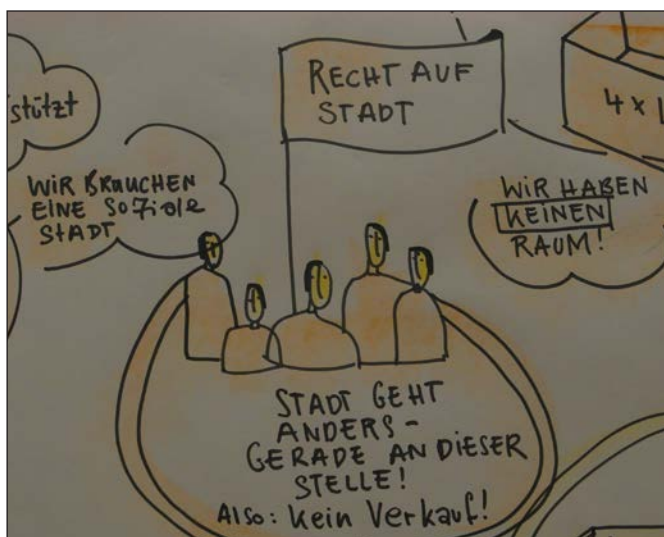 RECHT AUF
STADT
stützt
4 x
WIR BRAUCHEN
EINE Soziale
STADT
WIR HABEN
KEINEN
RAUM!
STADT GEHT
ANDERS -
GERADE AN DIESER
STELLE!
Also: Kein Verkauf!